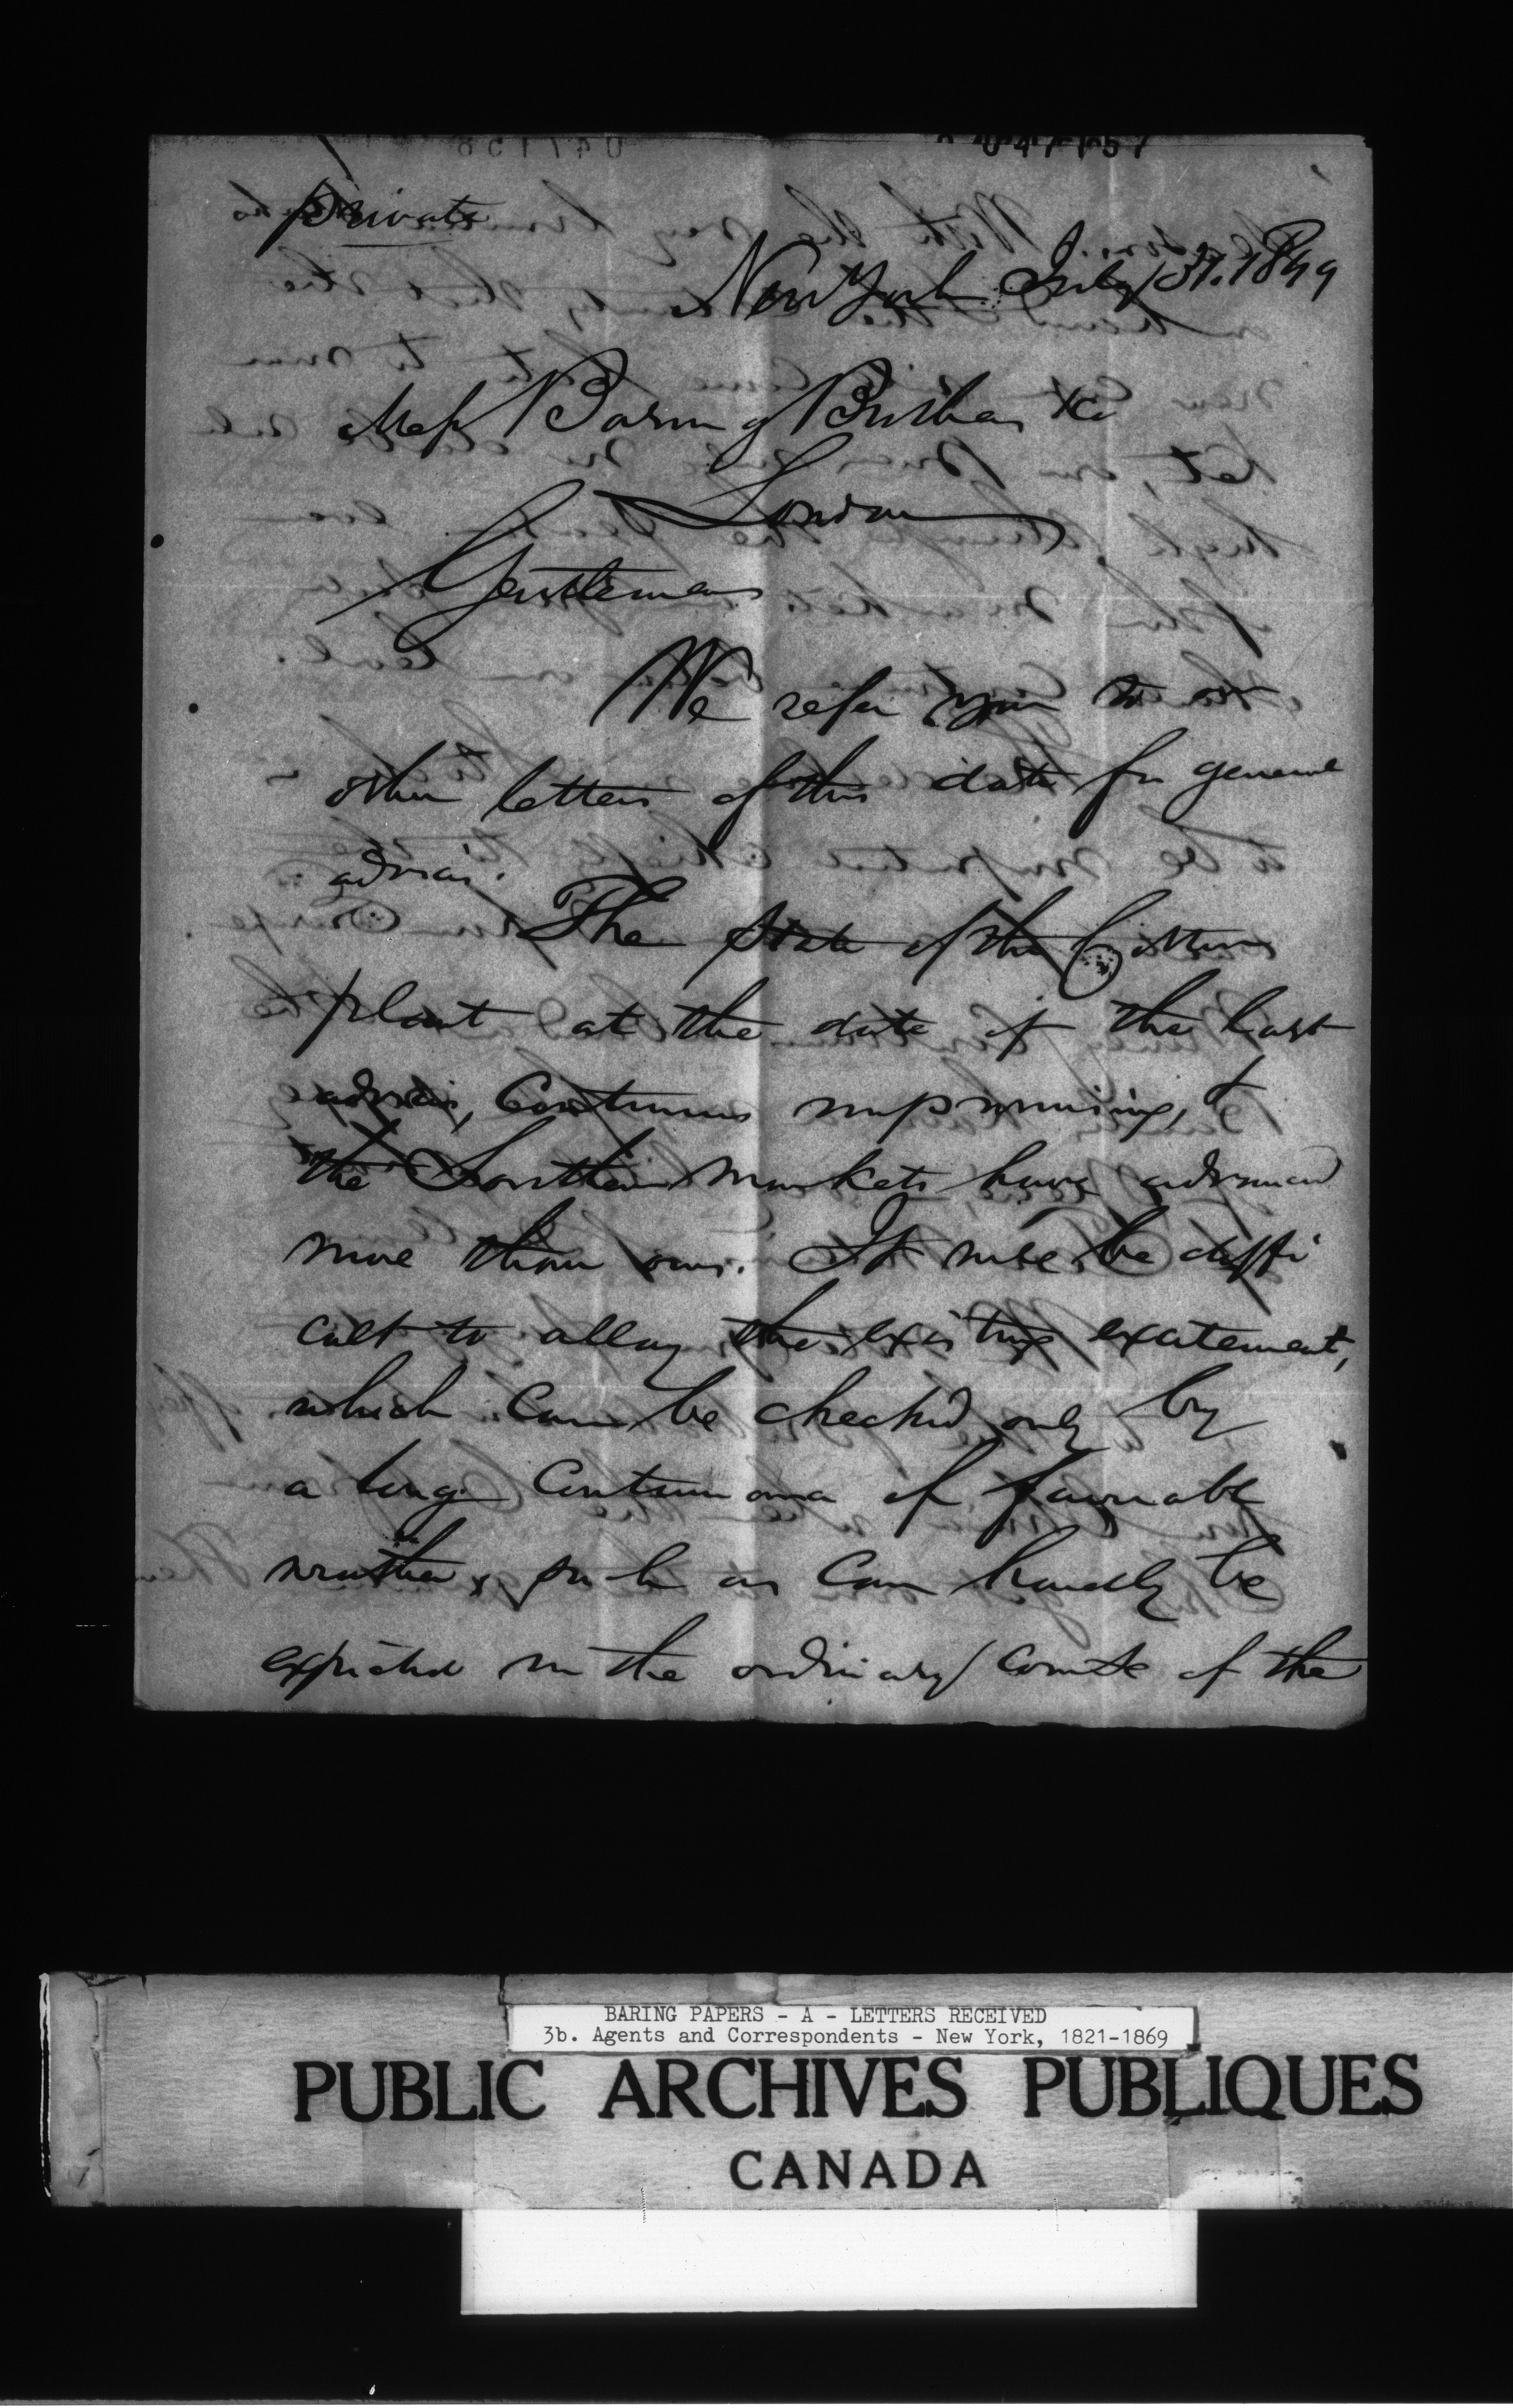 047157
Private
New York July 31. 1849
Mess Baring Brothers & Co
London
Gentlemen
We refer you to our
other letters of this date for general
advices.
The state of the Cotton
plant at the date of the last
advices, continues unpromising, &
the Southern markets have advanced
more than ours. It will be diffi
cult to allay the existing excitement,
which can be checked only by
a long continuance of favorable
weather, such as can hardly be
expected in the ordinary course of the
BARING PAPERS - A - LETTERS RECEIVED
3b. Agents and Correspondents - New York, 1821-1869
PUBLIC ARCHIVES PUBLIQUES
CANADA